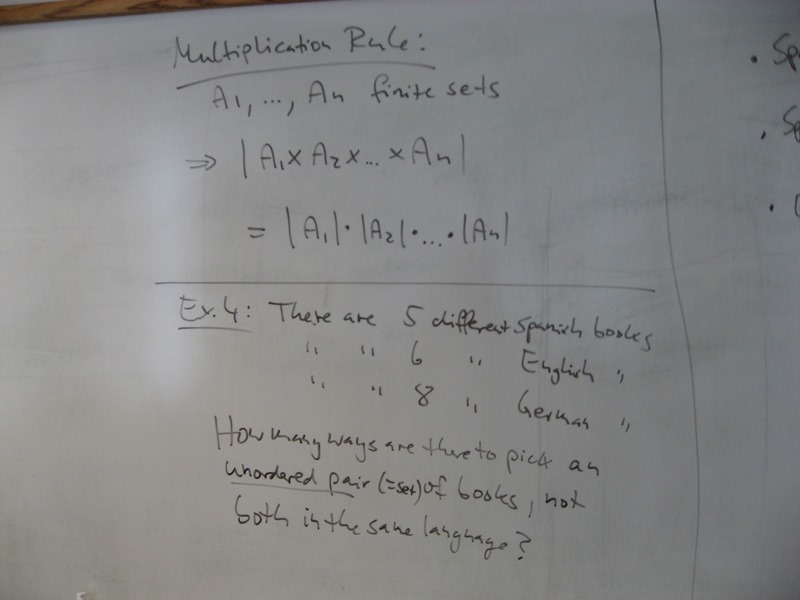 Multiplication Rule:
A1, ..., An finite sets
⇒ | A1 × A2 × ... × An |
= |A1| · |A2| · ... · |An|
Ex. 4: There are 5 different Spanish books
" " 6 " English "
" " 8 " German "
How many ways are there to pick an
unordered pair (=set) of books, not
both in the same language?
· Sp
· Sp
·